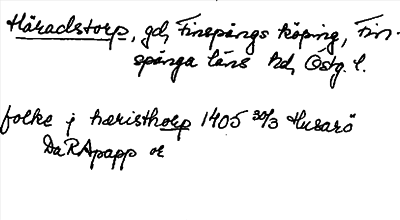 Häradstorp, gd, Finspångs köping, Fin-
spånga läns hd, Östg. l.
folke j hæristhorp 1405 30/3 Husarö
DaRApapp or